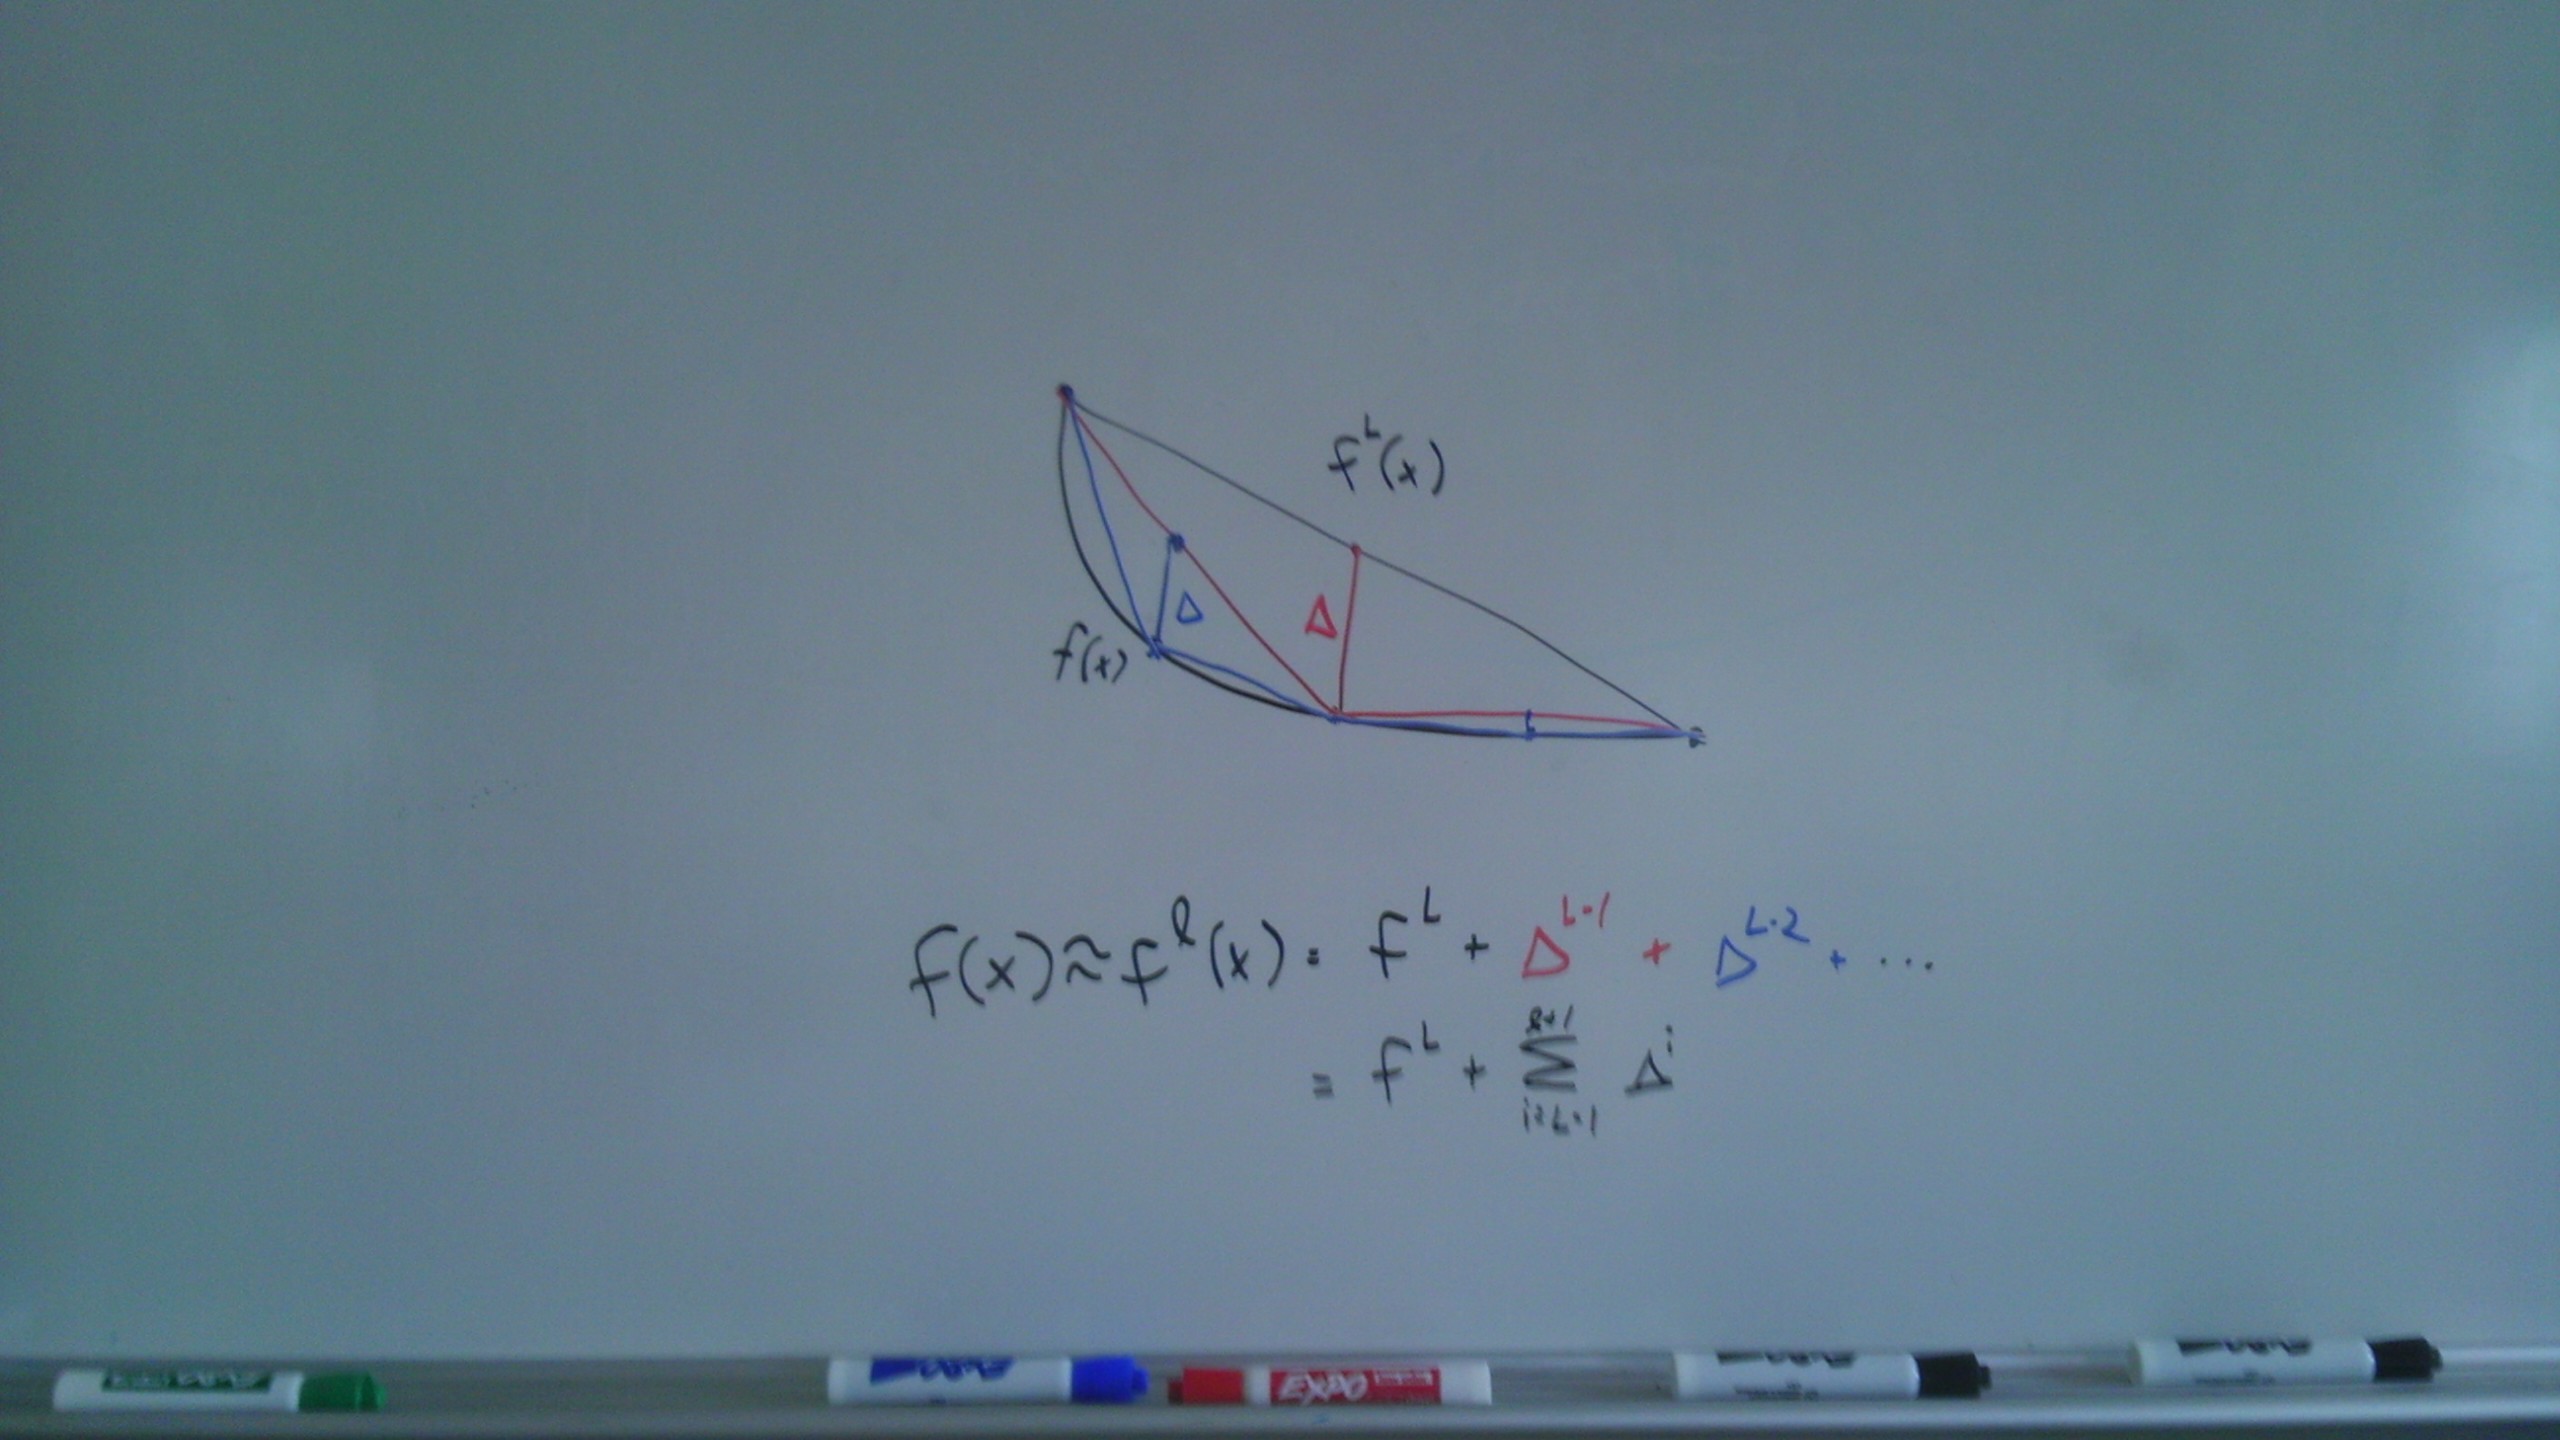 f^L(x)
Δ Δ
f(x)
f(x) ≈ f^ℓ(x) = f^L + Δ^{L-1} + Δ^{L-2} + ...
= f^L + ∑_{i=L-1}^{ℓ+1} Δ^i
EXPO